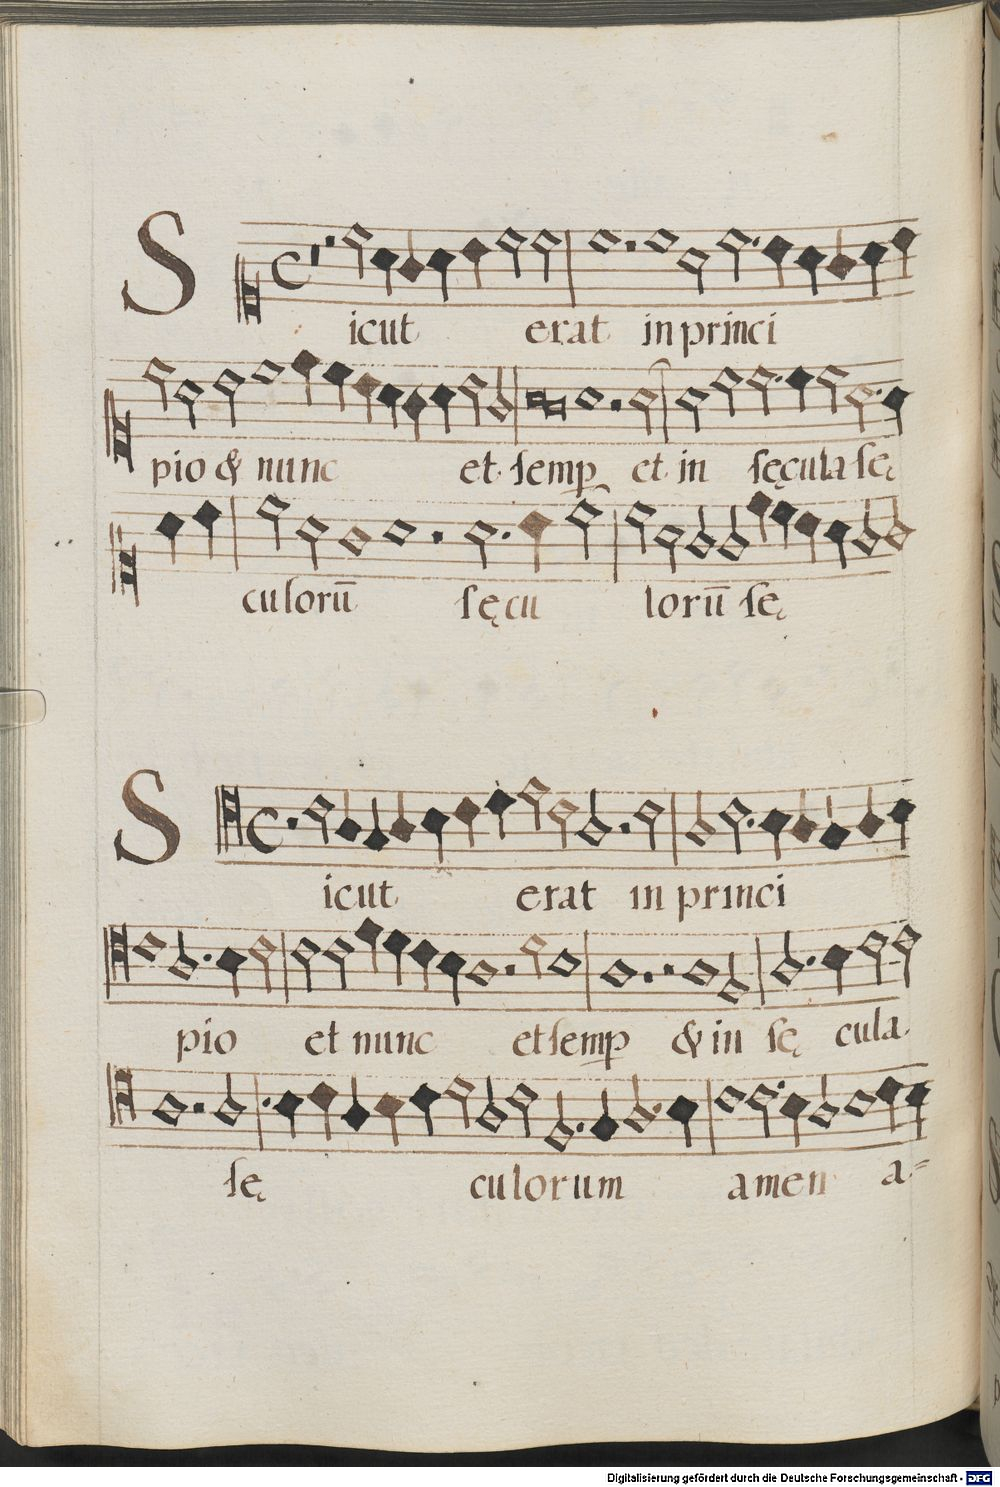 Sicut erat in princi
pio & nunc et semp et in sęcula sę
culorū sęcu lorū sę
Sicut erat in princi
pio et nunc et semp & in sę cula
sę culorum amen a=
Digitalisierung gefördert durch die Deutsche Forschungsgemeinschaft - DFG